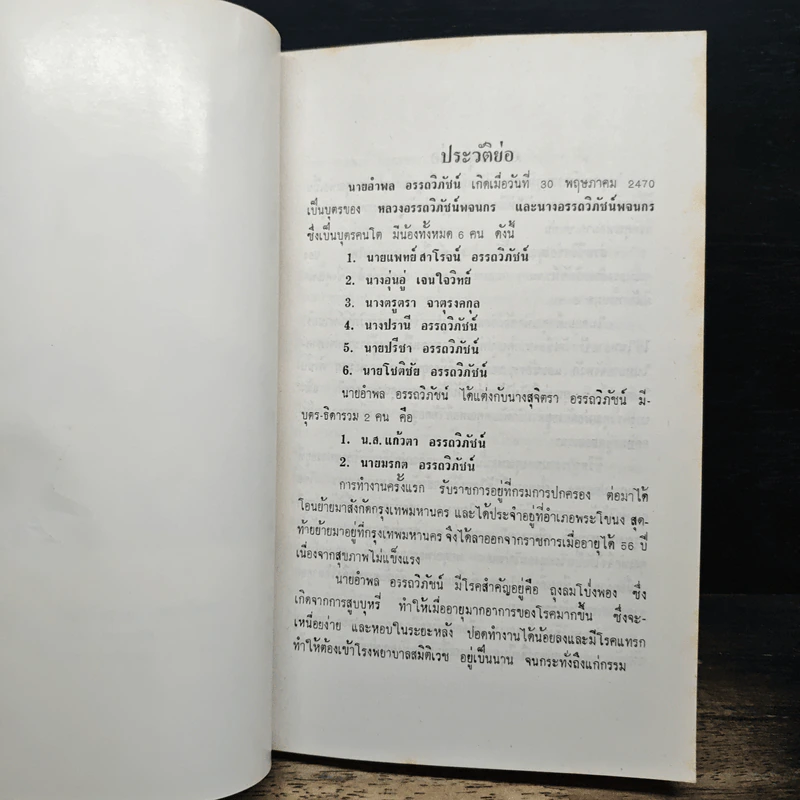 ประวัติย่อ
นายอำพล อรรถวิภัชน์ เกิดเมื่อวันที่ 30 พฤษภาคม 2470
เป็นบุตรของ หลวงอรรถวิภัชน์พจนกร และนางอรรถวิภัชน์พจนกร
ซึ่งเป็นบุตรคนโต มีน้องทั้งหมด 6 คน ดังนี้
1. นายแพทย์ สาโรจน์ อรรถวิภัชน์
2. นางอุ่นอู่ เจนใจวิทย์
3. นางตรูตรา จาตุรงคกุล
4. นางปรานี อรรถวิภัชน์
5. นายปรีชา อรรถวิภัชน์
6. นายโชติชัย อรรถวิภัชน์
นายอำพล อรรถวิภัชน์ ได้แต่งกับนางสุจิตรา อรรถวิภัชน์ มี-
บุตร-ธิดารวม 2 คน คือ
1. น.ส.แก้วตา อรรถวิภัชน์
2. นายมรกต อรรถวิภัชน์
การทำงานครั้งแรก รับราชการอยู่ที่กรมการปกครอง ต่อมาได้
โอนย้ายมาสังกัดกรุงเทพมหานคร และได้ประจำอยู่ที่อำเภอพระโขนง สุด-
ท้ายย้ายมาอยู่ที่กรุงเทพมหานคร จึงได้ลาออกจากราชการเมื่ออายุได้ 56 ปี
เนื่องจากสุขภาพไม่แข็งแรง
นายอำพล อรรถวิภัชน์ มีโรคสำคัญอยู่คือ ถุงลมโป่งพอง ซึ่ง
เกิดจากการสูบบุหรี่ ทำให้เมื่ออายุมากอาการของโรคมากขึ้น ซึ่งจะ-
เหนื่อยง่าย และหอบในระยะหลัง ปอดทำงานได้น้อยลงและมีโรคแทรก
ทำให้ต้องเข้าโรงพยาบาลสมิติเวช อยู่เป็นนาน จนกระทั่งถึงแก่กรรม